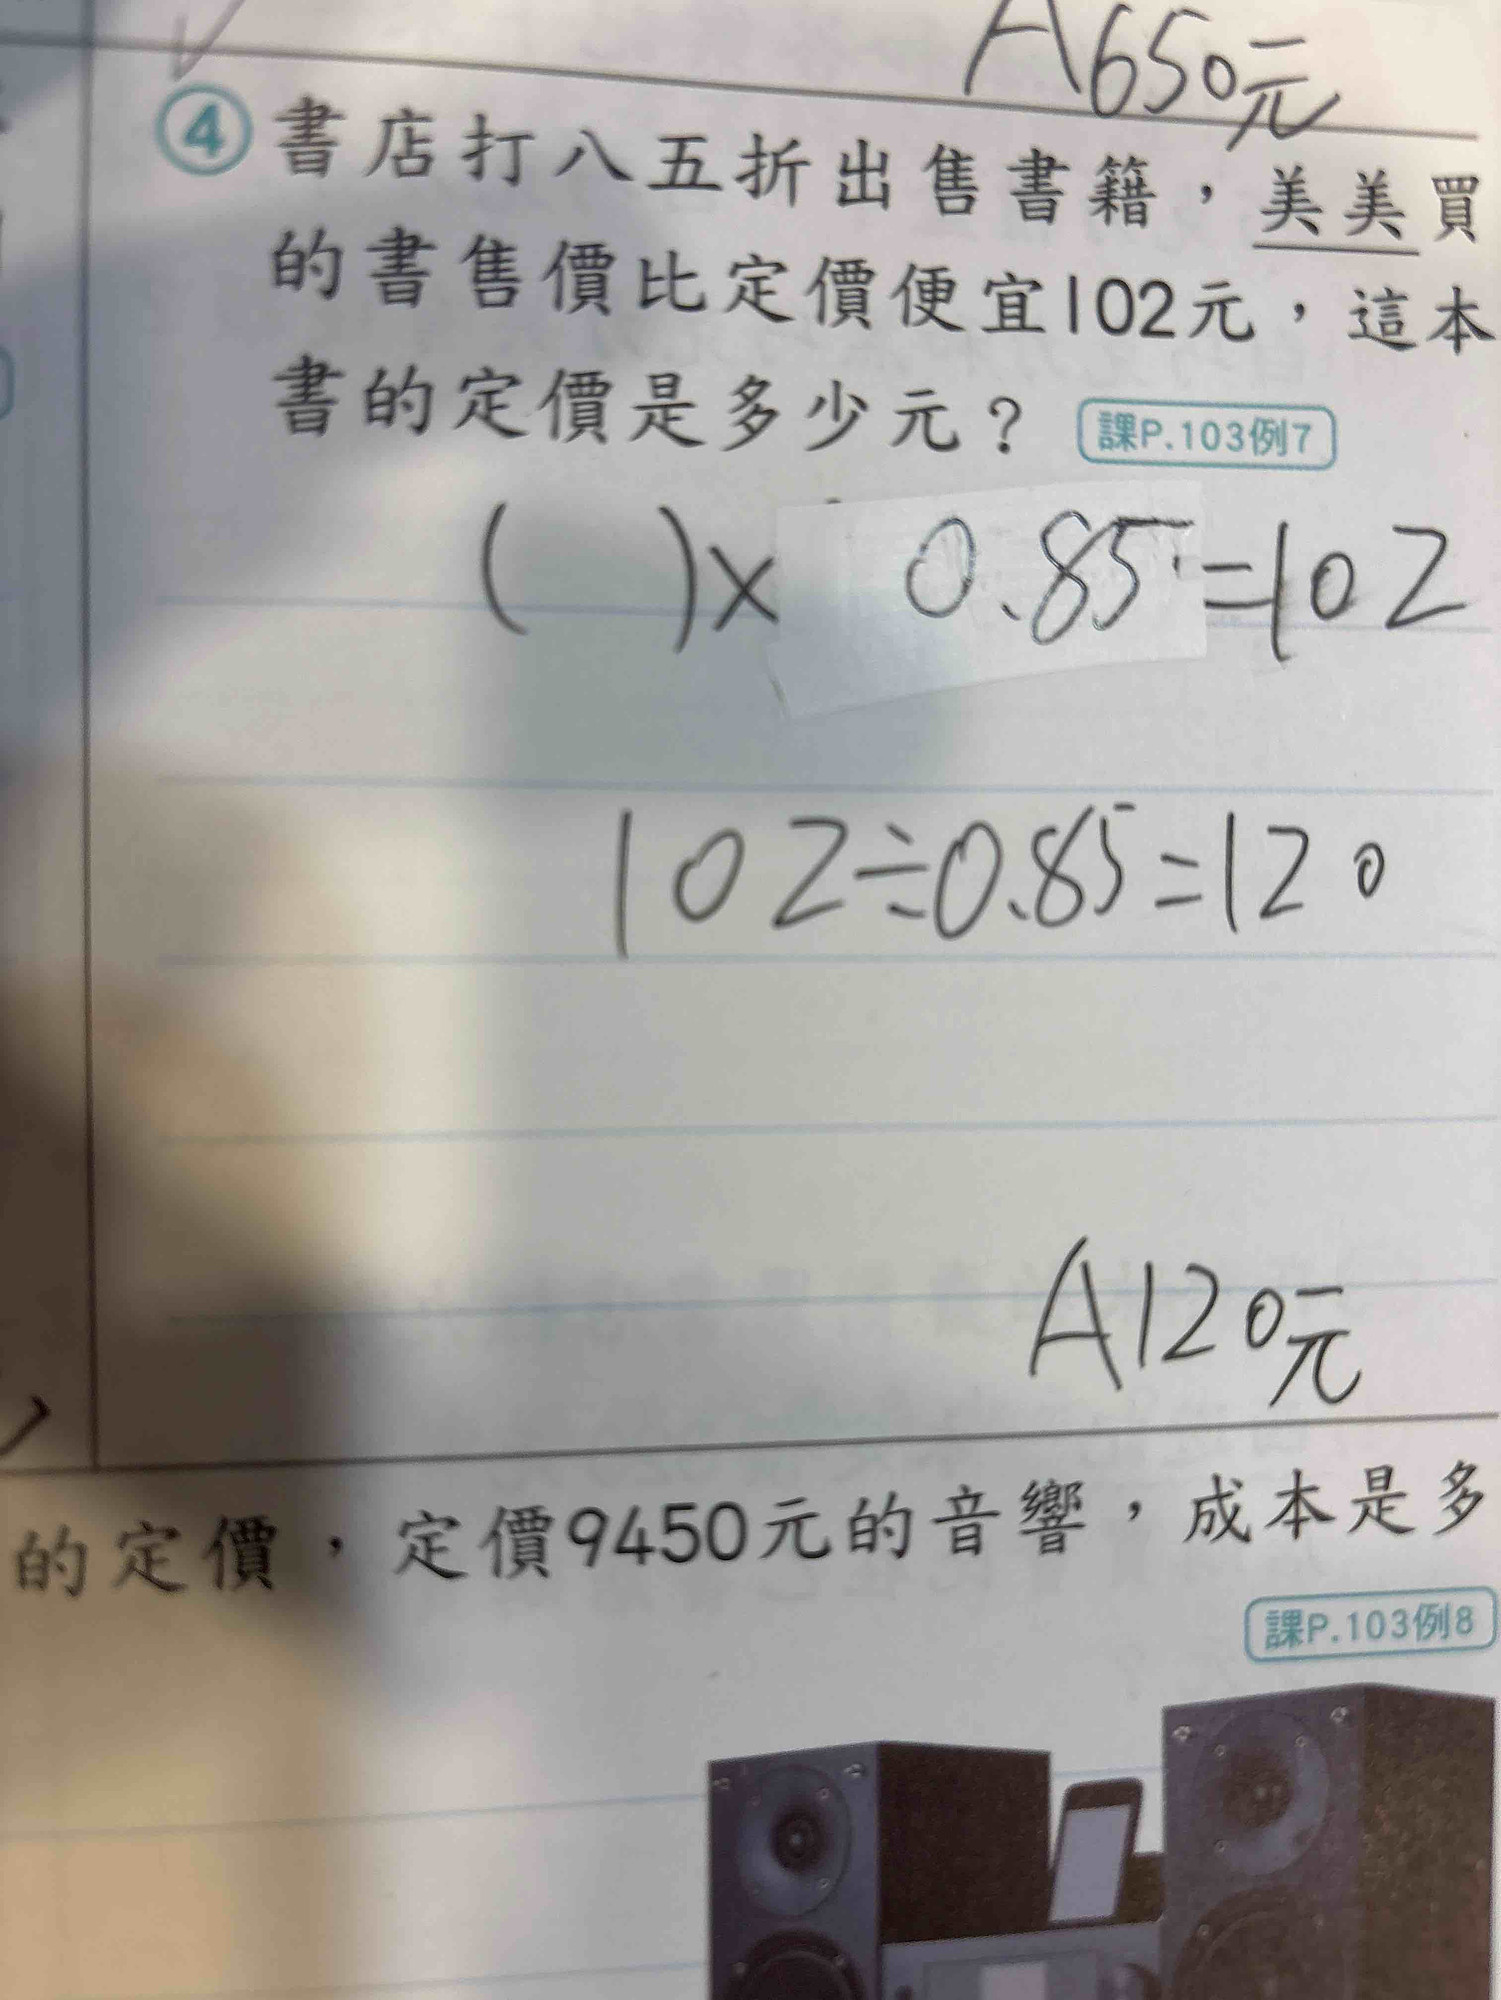 A650元
④ 書店打八五折出售書籍，美美買
的書售價比定價便宜102元，這本
書的定價是多少元？ 課P.103例7
( )× 0.85=102
102÷0.85=120
A120元
的定價，定價9450元的音響，成本是多
課P.103例8